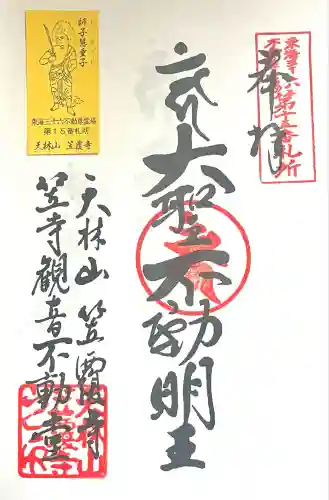 奉拝
東海三十六
不動尊霊場第十五番札所
大聖不動明王
天林山 笠覆寺
笠寺観音不動堂
師子慧童子
東海三十六不動尊霊場
第15番札所
天林山 笠覆寺